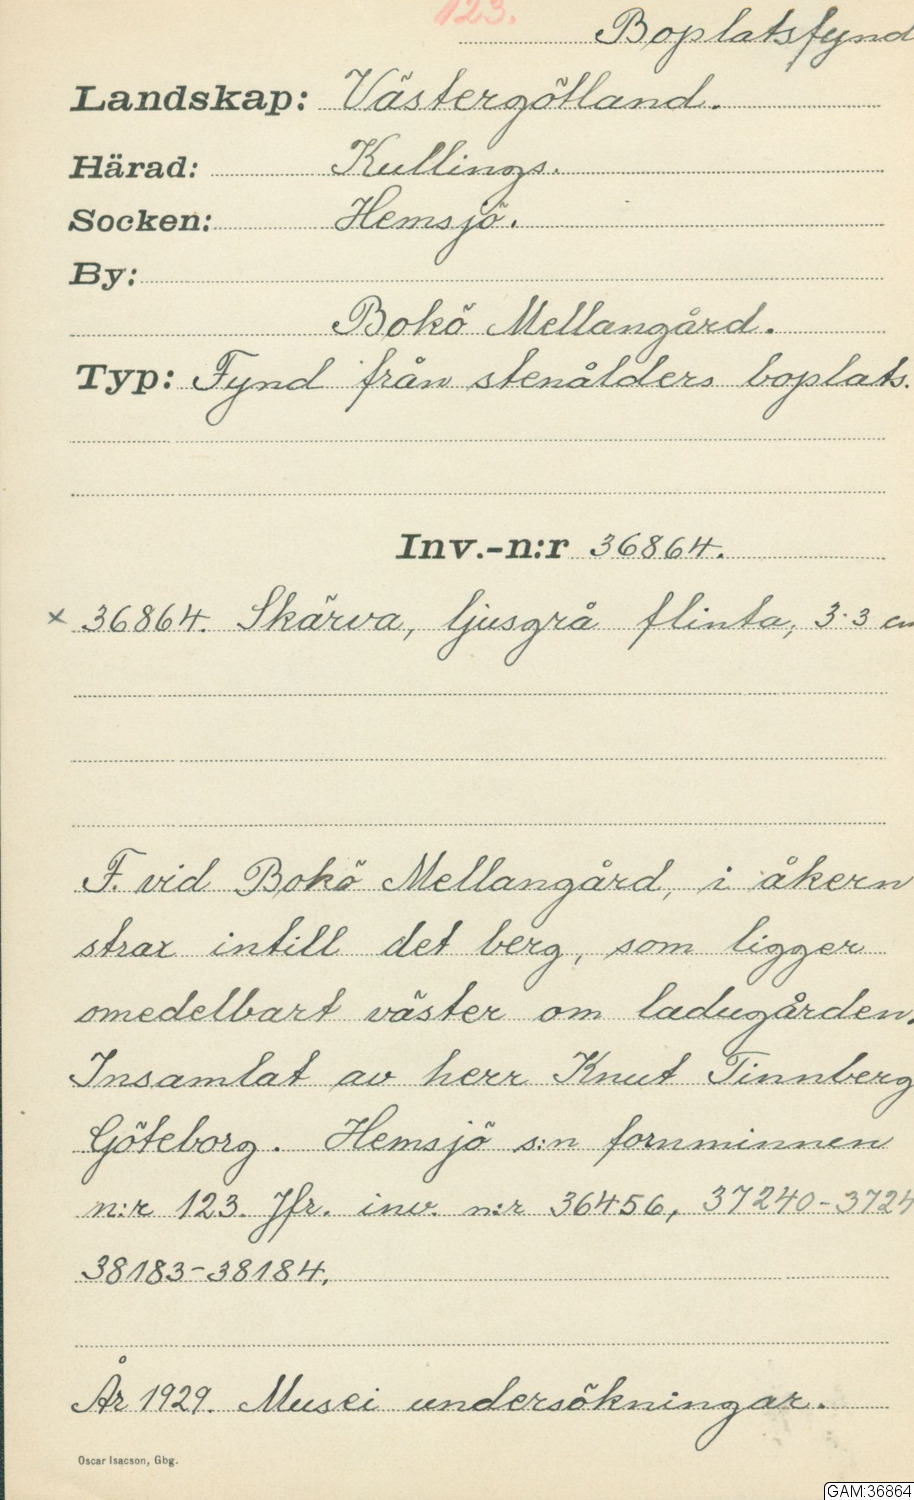 123.
Boplatsfynd
Landskap: Västergötland.
Härad: Kullings.
Socken: Hemsjö.
By:
Bokö Mellangård.
Typ: Fynd från stenålders boplats.
Inv.-n:r 36864.
x 36864. Skärva, ljusgrå flinta, 3·3 cm
F. vid Bokö Mellangård, i åkern
strax intill det berg, som ligger
omedelbart väster om ladugården.
Insamlat av herr Knut Tinnberg
Göteborg. Hemsjö s:n fornminnen
n:r 123. Jfr. inv. n:r 36456, 37240-3724
38183-38184.
År 1929. Musei undersökningar.
Oscar Isacson, Gbg.
GAM:36864